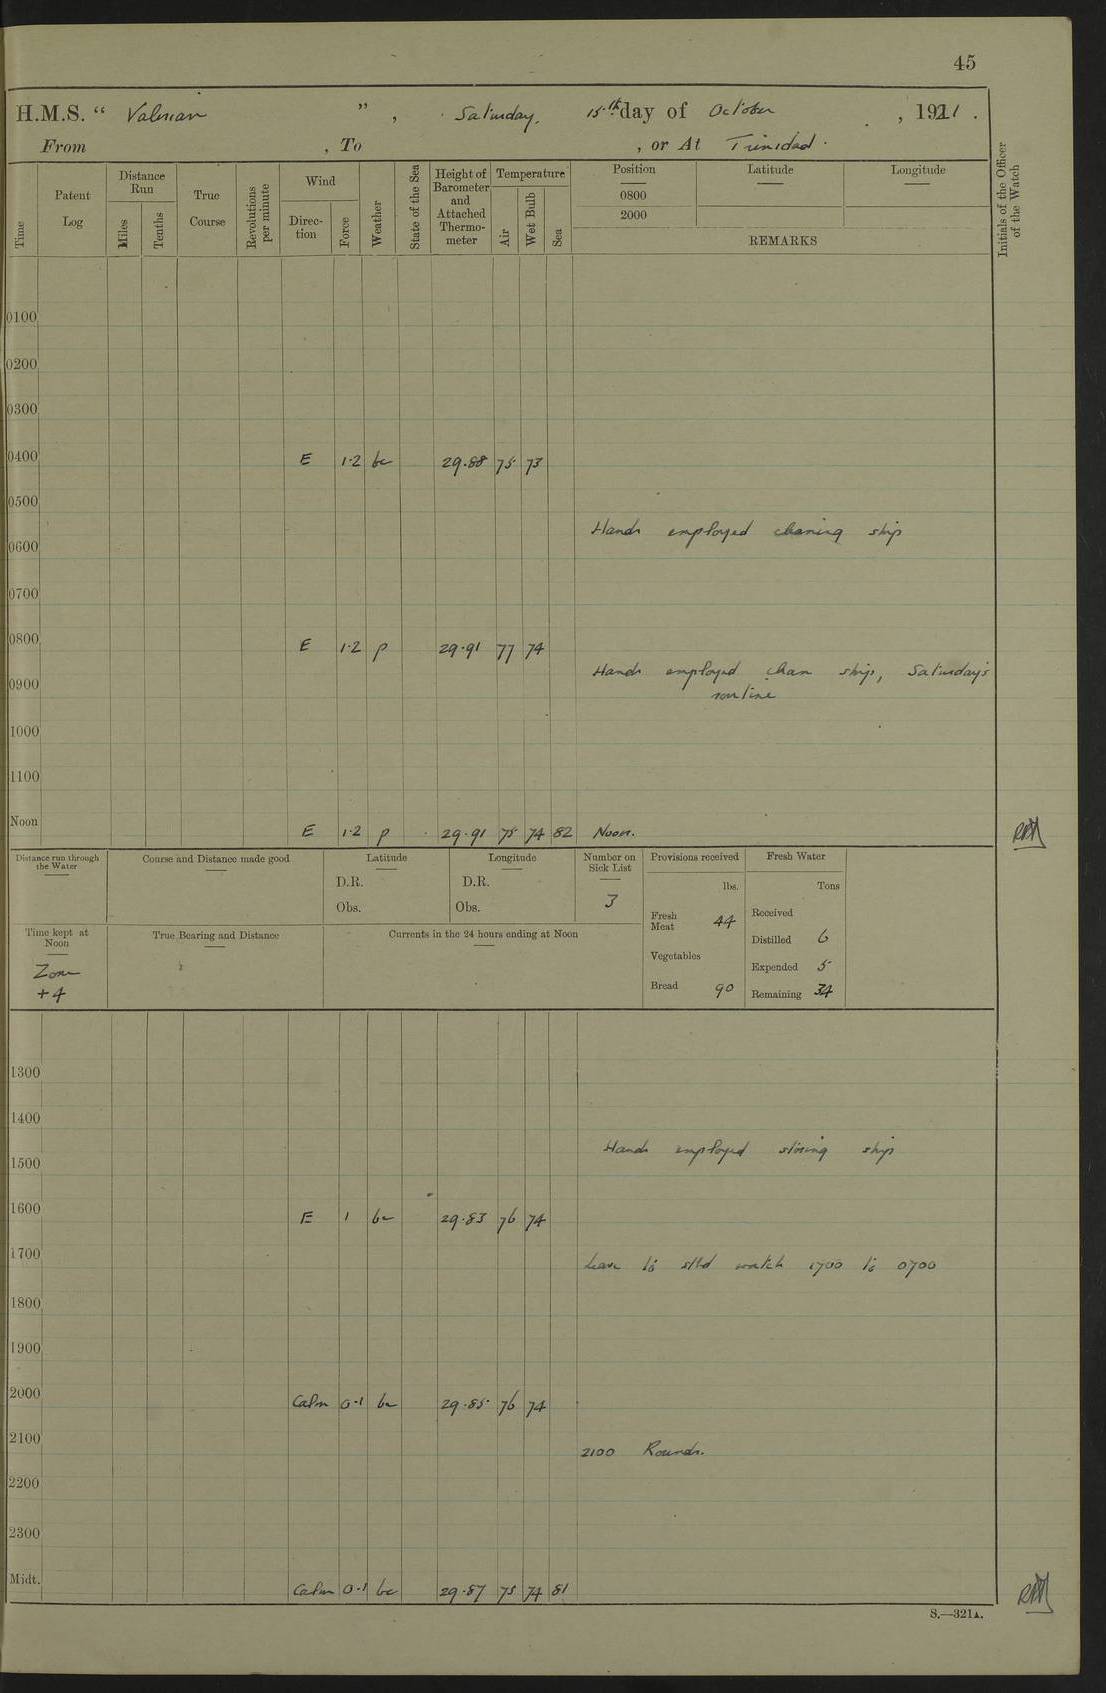 45
H.M.S. “ Valerian ” , Saturday, 15th day of October , 1921 .
From , To , or At Trinidad .
Time
Patent Log
Distance Run
Miles
Tenths
True Course
Revolutions per minute
Wind
Direc-tion
Force
Weather
State of the Sea
Height of Barometer and Attached Thermo-meter
Temperature
Air
Wet Bulb
Sea
Position
0800
2000
Latitude
Longitude
REMARKS
Initials of the Officer of the Watch
0100
0200
0300
0400 E 1·2 bc 29.88 75 73
0500
Hands employed cleaning ship
0600
0700
0800 E 1·2 p 29·91 77 74
Hands employed clean ship, Saturday's
0900
routine
1000
1100
Noon E 1·2 p 29·91 75 74 82 Noon.
Distance run through the Water
Course and Distance made good
Latitude
D.R.
Obs.
Longitude
D.R.
Obs.
Number on Sick List
3
Provisions received
lbs.
Fresh Meat 44
Vegetables
Bread 90
Fresh Water
Tons
Received
Distilled 6
Expended 5
Remaining 34
Time kept at Noon
Zone
+4
True Bearing and Distance
Currents in the 24 hours ending at Noon
1300
1400
Hands employed storing ship
1500
1600 E 1 bc 29·83 76 74
1700
Leave to stbd watch 1700 to 0700
1800
1900
2000 Calm 0·1 bc 29·85 76 74
2100
2100 Rounds.
2200
2300
Midt. Calm 0·1 bc 29·87 75 74 81
S.—321A.